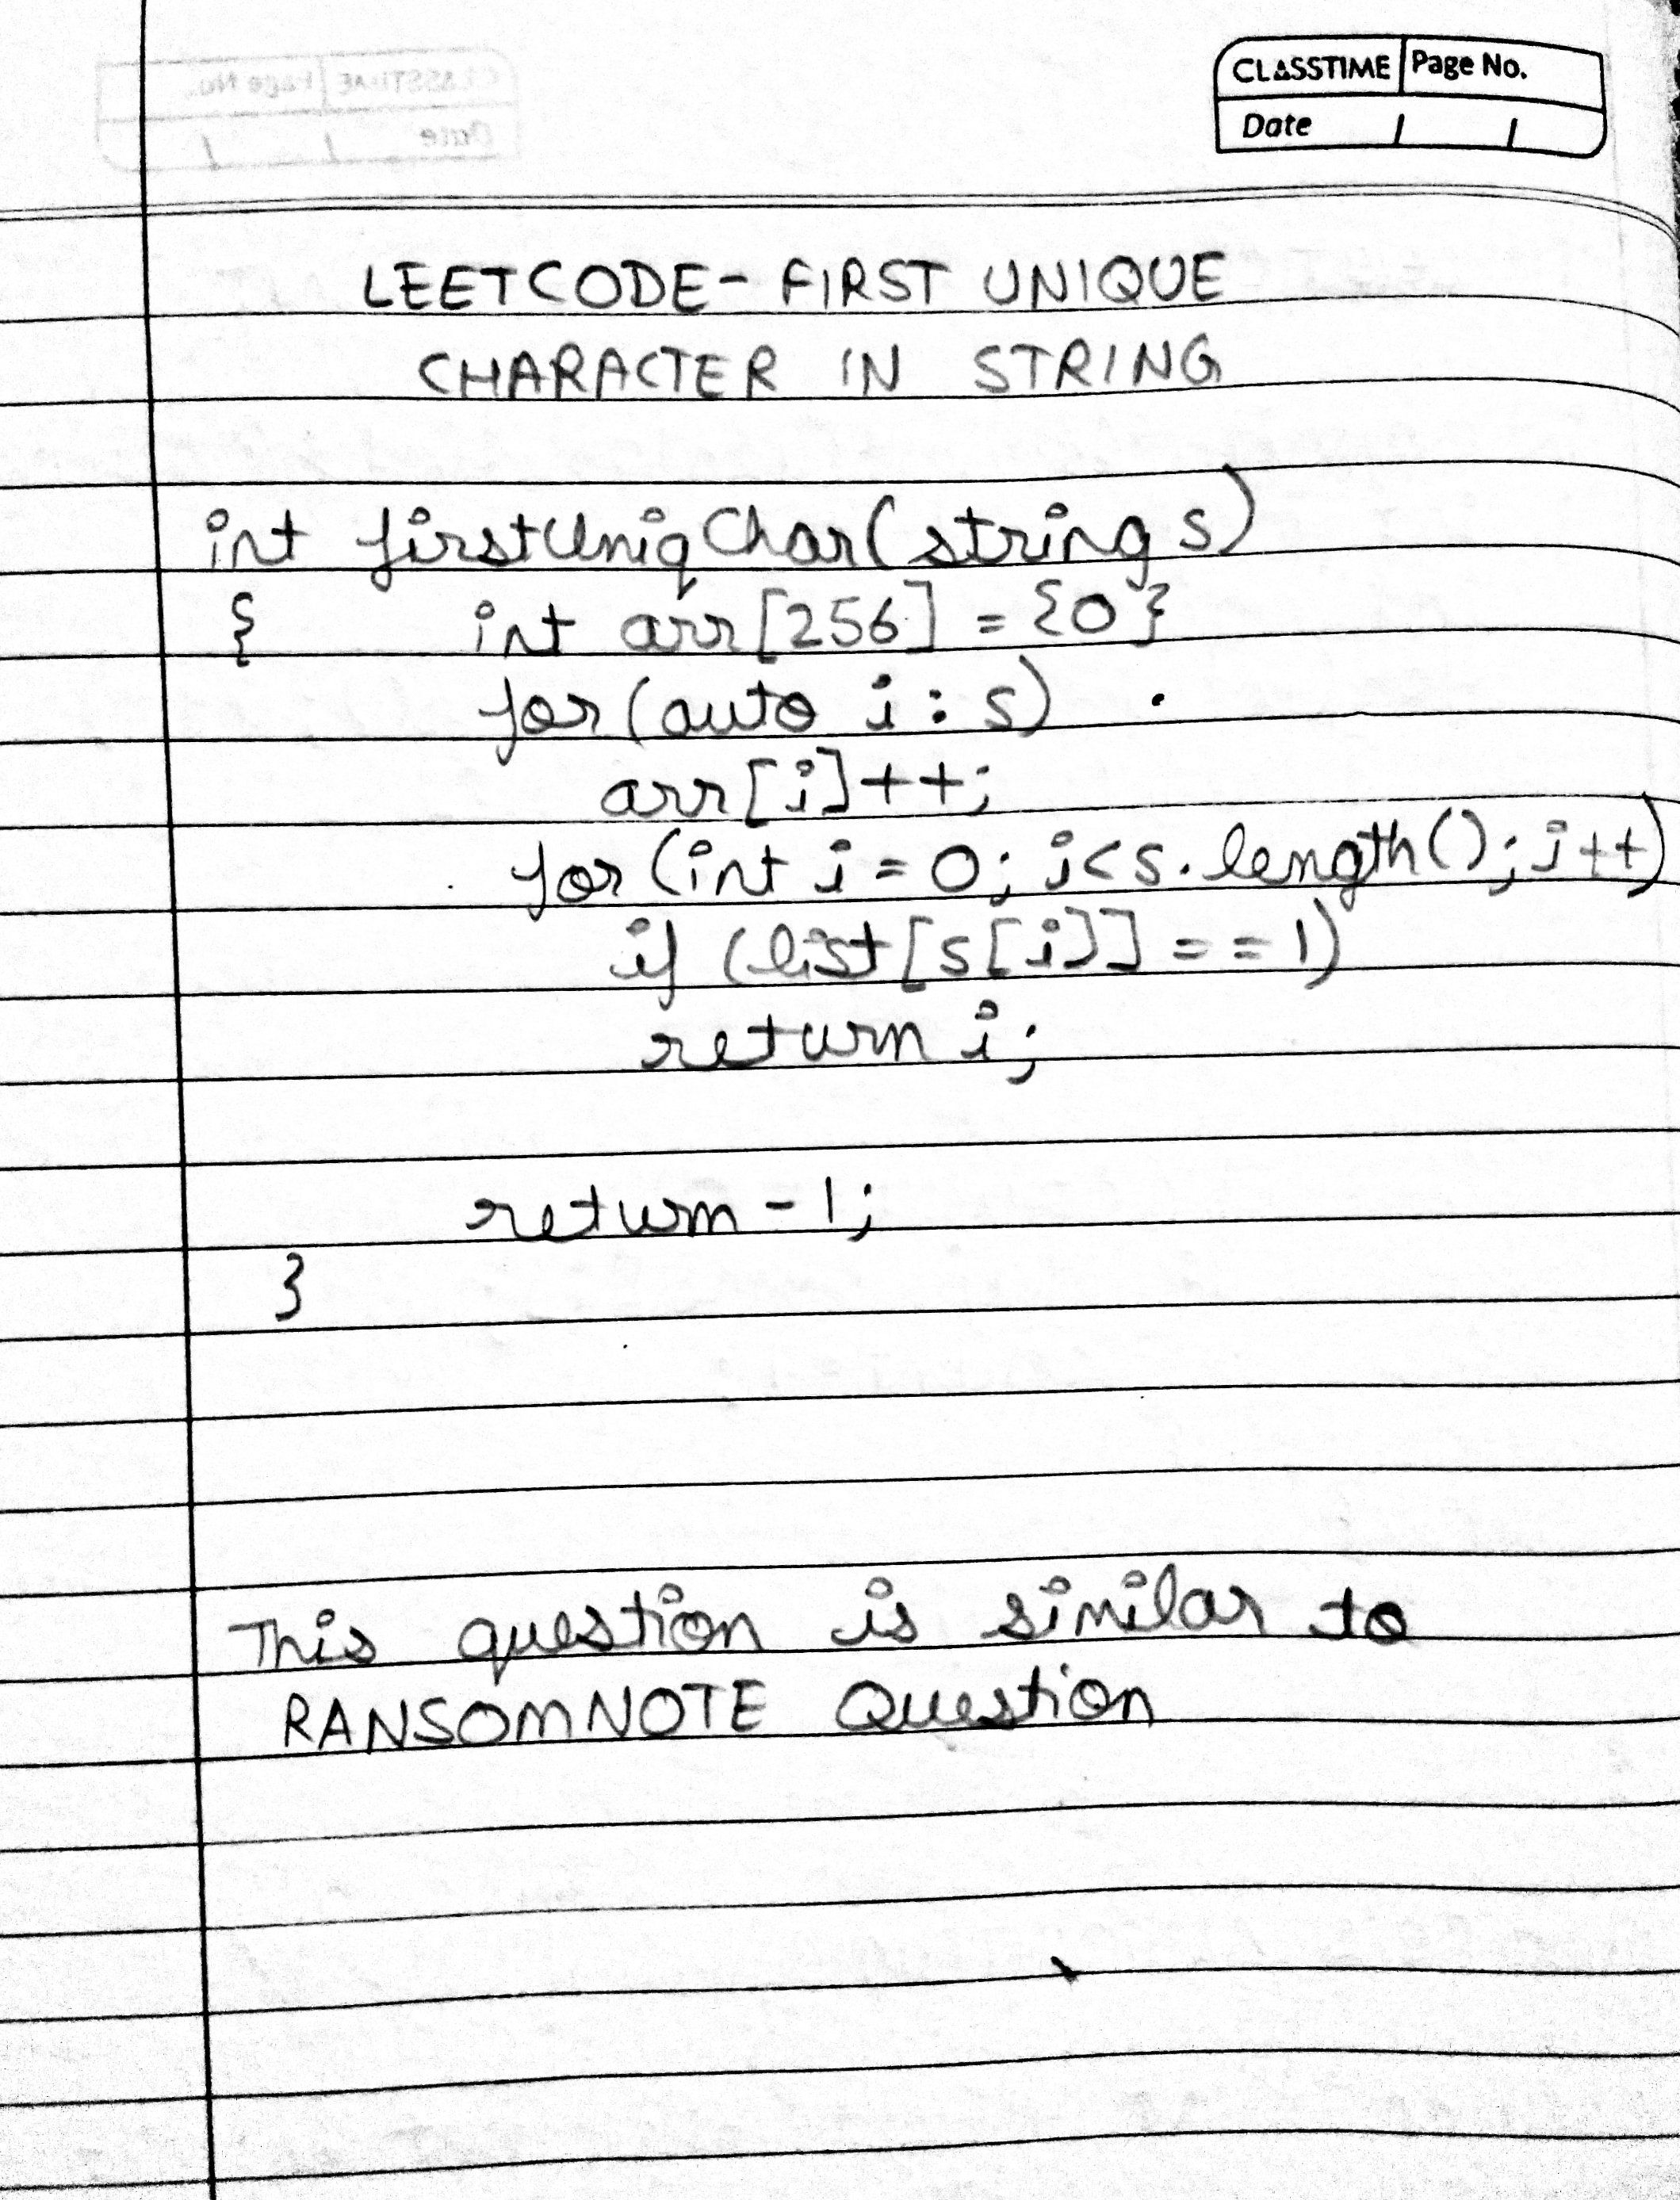 CLASSTIME Page No.
Date / /
LEETCODE - FIRST UNIQUE
CHARACTER IN STRING
int firstUniqChar(string s)
{ int arr[256] = {0}
for (auto i : s)
arr[i]++;
for (int i = 0; i<s.length(); i++)
if (list[s[i]] == 1)
return i;
return -1;
}
This question is similar to
RANSOMNOTE Question